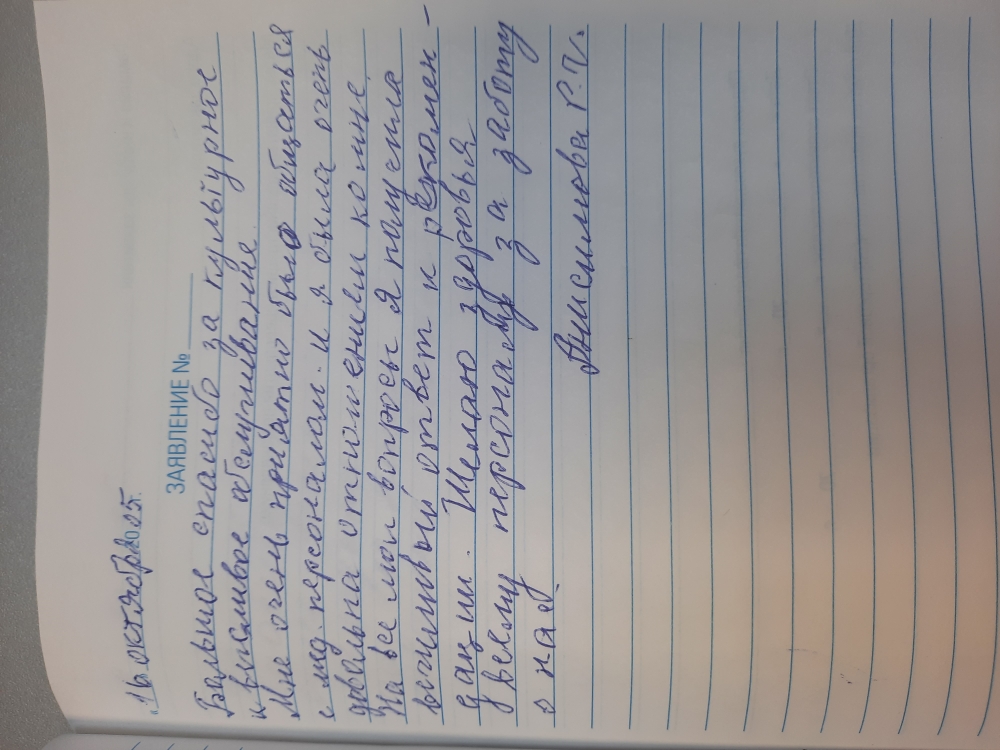 16 октября 2025г.
ЗАЯВЛЕНИЕ №
Большое спасибо за культурное
и вежливое обслуживание.
Мне очень приятно было общаться
с мед. персоналом. и я была очень
довольна отношением ко мне.
На все мои вопросы я получила
вежливый ответ и рекомен-
дации. Желаю здоровья
всему персоналу за заботу
о нас
Анисимова Р.П.